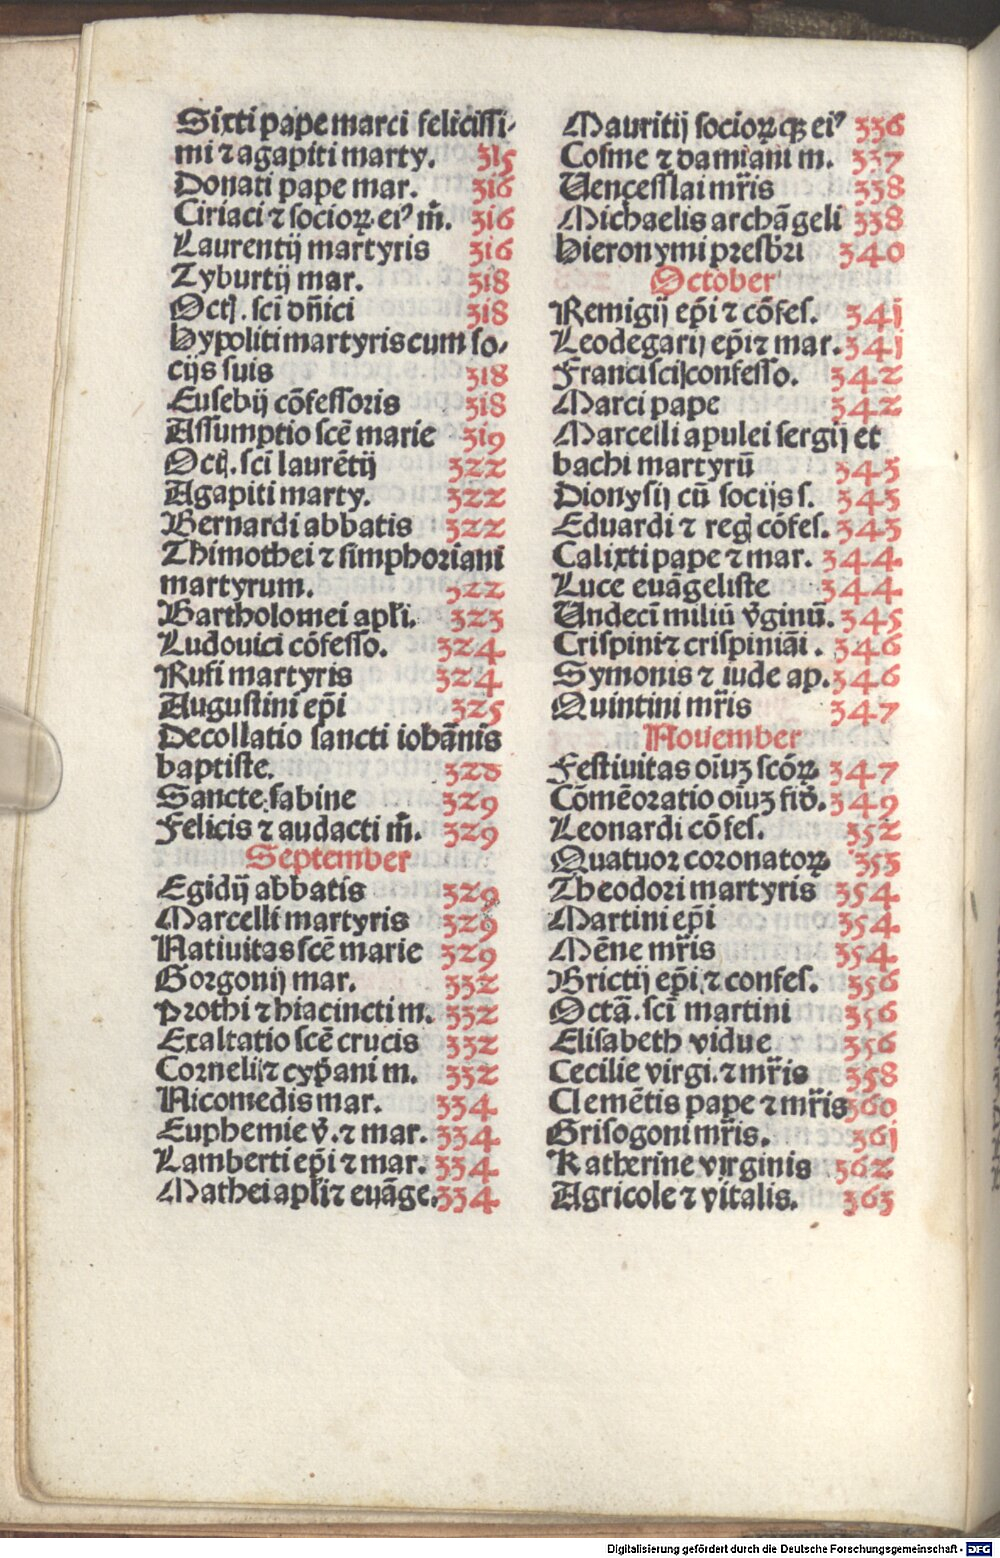 Sixti pape marci felicissi-
mi ⁊ agapiti marty. 315
Donati pape mar. 316
Ciriaci ⁊ socioꝝ ei⁹ m̄. 316
Laurentij martyris 316
Tyburtij mar. 318
Oct̄. sci dn̄ici 318
Hypoliti martyris cum so-
cijs suis 318
Eusebij cōfessoris 318
Assumptio scē marie 319
Oct̄. sci laurētij 322
Agapiti marty. 322
Bernardi abbatis 322
Thimothei ⁊ simphoriani
martyrum. 322
Bartholomei apl̄i. 323
Ludouici cōfesso. 324
Rufi martyris 324
Augustini ep̄i 325
Decollatio sancti iohānis
baptiste. 328
Sancte sabine 329
Felicis ⁊ audacti m̄. 329
September
Egidij abbatis 329
Marcelli martyris 329
Natiuitas scē marie 329
Gorgonij mar. 332
Prothi ⁊ hiacincti m. 332
Exaltatio scē crucis 332
Cornelij ⁊ cyp̄ani m. 332
Nicomedis mar. 334
Euphemie v̄. ⁊ mar. 334
Lamberti ep̄i ⁊ mar. 334
Mathei apl̄i ⁊ euāge. 334
Mauritij socioꝝqꝫ ei⁹ 336
Cosme ⁊ damiani m. 337
Uencesslai mr̄is 338
Michaelis archāgeli 338
Hieronymi presbr̄i 340
October
Remigij ep̄i ⁊ cōfes. 341
Leodegarij ep̄i ⁊ mar. 341
Francisci confesso. 342
Marci pape 342
Marcelli apulei sergij et
bachi martyrū 343
Dionysij cū socijs s. 343
Eduardi ⁊ reg cōfes. 343
Calixti pape ⁊ mar. 344
Luce euāgeliste 344
Undecī miliū v̄ginū. 345
Crispini ⁊ crispiniāi. 346
Symonis ⁊ iude ap. 346
Quintini mr̄is 347
Nouember
Festiuitas oīuꝫ scōꝝ 347
Cōmēoratio oīuꝫ fid̄. 349
Leonardi cōfes. 352
Quatuor coronatoꝝ 353
Theodori martyris 354
Martini ep̄i 354
Mēne mr̄is 354
Brictij ep̄i ⁊ confes. 356
Octā. sci martini 356
Elisabeth vidue 356
Cecilie virgi. ⁊ mr̄is 358
Clemētis pape ⁊ mr̄is 360
Grisogoni mr̄is. 361
Katherine virginis 362
Agricole ⁊ vitalis. 363
Digitalisierung gefördert durch die Deutsche Forschungsgemeinschaft - DFG